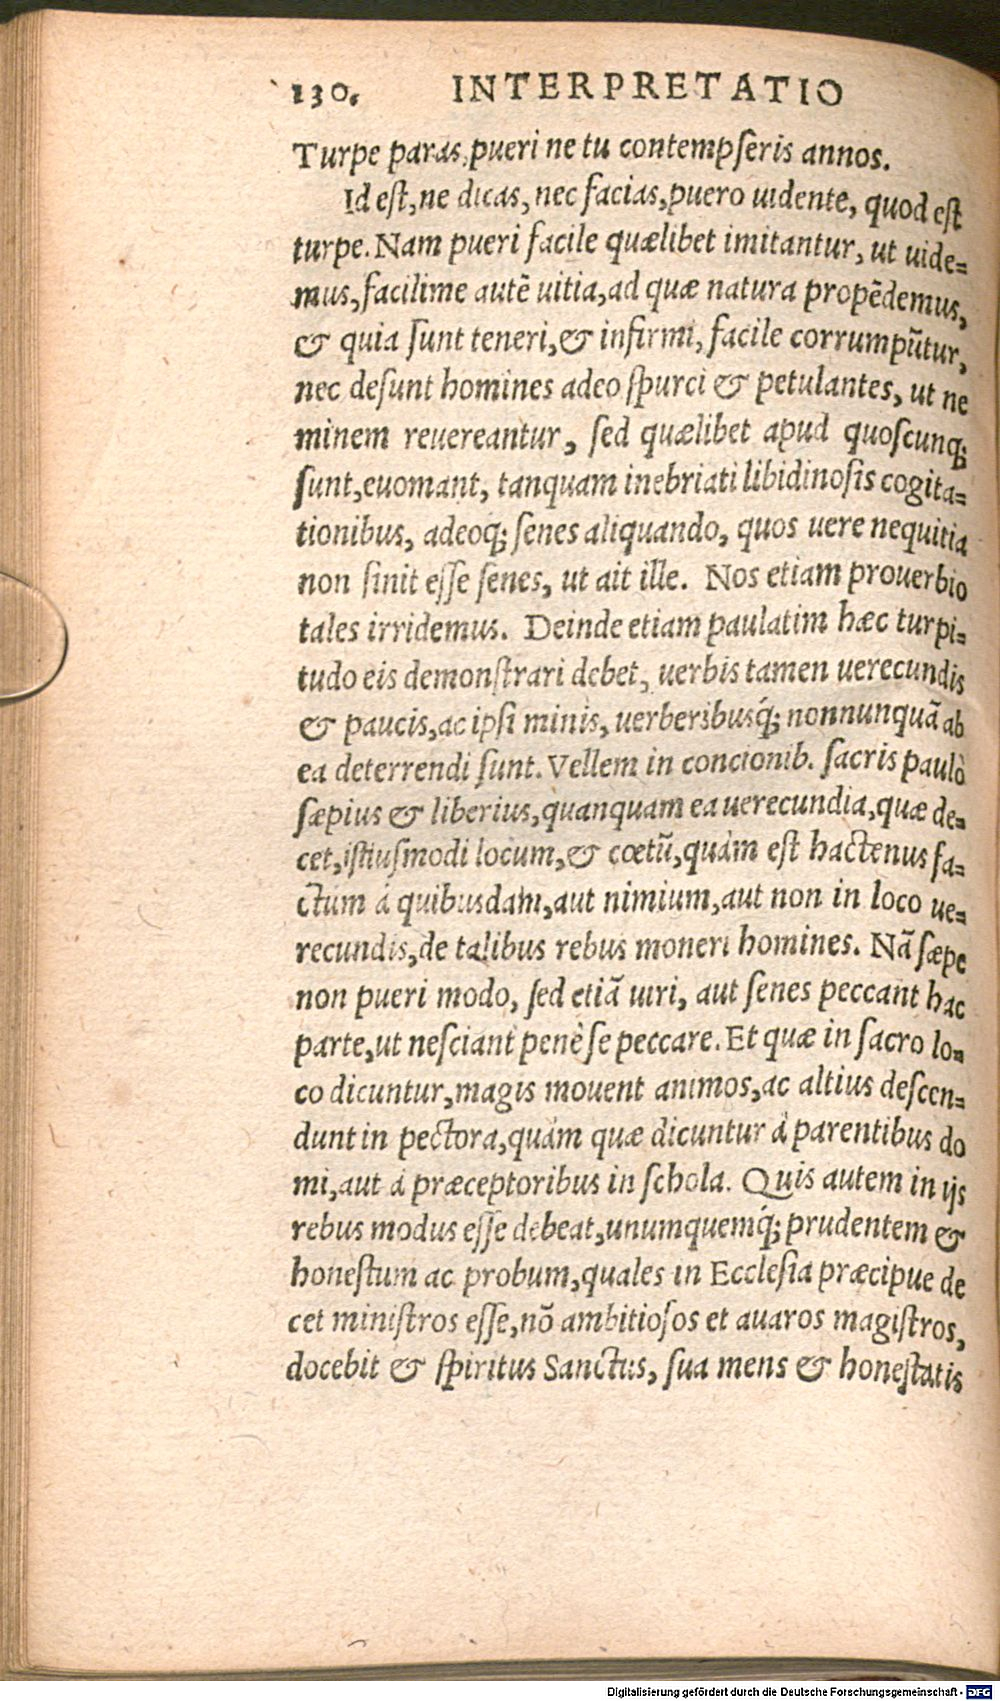 130. INTERPRETATIO
Turpe paras, pueri ne tu contempseris annos.
Id est, ne dicas, nec facias, puero uidente, quod est
turpe. Nam pueri facile quælibet imitantur, ut uide=
mus, facilime autẽ uitia, ad quæ natura propẽdemus,
& quia sunt teneri, & infirmi, facile corrumpũtur,
nec desunt homines adeo spurci & petulantes, ut ne
minem reuereantur, sed quælibet apud quoscunq;
sunt, euomant, tanquam inebriati libidinosis cogita=
tionibus, adeoq; senes aliquando, quos uere nequitia
non sinit esse senes, ut ait ille. Nos etiam prouerbio
tales irridemus. Deinde etiam paulatim hæc turpi=
tudo eis demonstrari debet, uerbis tamen uerecundis
& paucis, ac ipsi minis, uerberibusq́; nonnunquã ab
ea deterrendi sunt. Vellem in concionib. sacris paulò
sæpius & liberius, quanquam ea uerecundia, quæ de=
cet, istiusmodi locum, & cœtũ, quàm est hactenus fa=
ctum á quibusdam, aut nimium, aut non in loco ue=
recundis, de talibus rebus moneri homines. Nã sæpe
non pueri modo, sed etiã uiri, aut senes peccant hac
parte, ut nesciant penè se peccare. Et quæ in sacro lo=
co dicuntur, magis mouent animos, ac altius descen=
dunt in pectora, quàm quæ dicuntur á parentibus do
mi, aut á præceptoribus in schola. Quis autem in ijs
rebus modus esse debeat, unumquemq́; prudentem &
honestum ac probum, quales in Ecclesia præcipue de
cet ministros esse, nõ ambitiosos et auaros magistros,
docebit & spiritus Sanctus, sua mens & honestatis
Digitalisierung gefördert durch die Deutsche Forschungsgemeinschaft - DFG